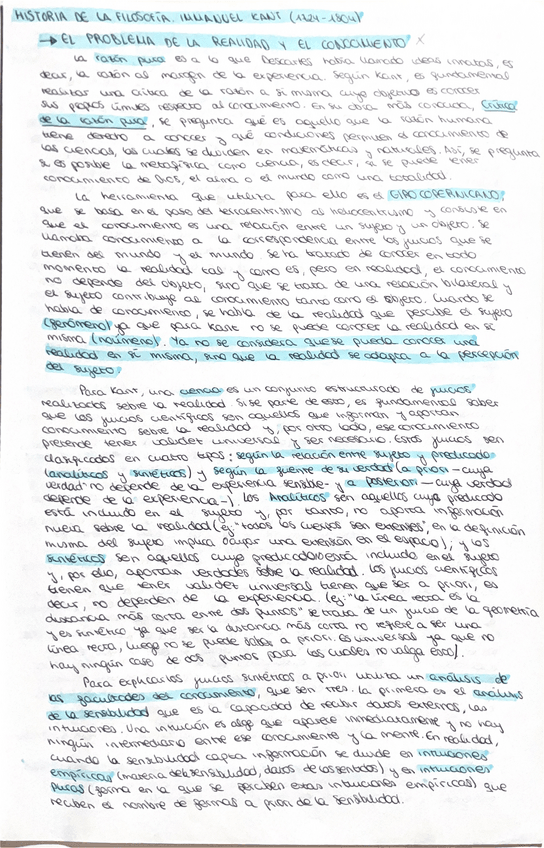 HISTORIA DE LA FILOSOFÍA. IMMANUEL KANT (1724-1804)
→ EL PROBLEMA DE LA REALIDAD Y EL CONOCIMIENTO
La razón pura es a lo que Descartes había llamado ideas innatas, es
decir, la razón al margen de la experiencia. Según Kant, es fundamental
realizar una crítica de la razón a sí misma cuyo objetivo es conocer
sus propios límites respecto al conocimiento. En su obra más conocida, Crítica
de la razón pura, se pregunta qué es aquello que la razón humana
tiene derecho a conocer y qué condiciones permiten el conocimiento de
las ciencias, las cuales se dividen en matemáticas y naturales. Así, se pregunta
si es posible la metafísica como ciencia, es decir, si se puede tener
conocimiento de Dios, el alma o el mundo como una totalidad.
La herramienta que utiliza para ello es el GIRO COPERNICANO,
que se basa en el paso del terracentrismo al heliocentrismo y consiste en
que el conocimiento es una relación entre un sujeto y un objeto. Se
llamaba conocimiento a la correspondencia entre los juicios que se
tienen del mundo y el mundo. Se ha tratado de conocer en todo
momento la realidad tal y como es, pero en realidad, el conocimiento
no depende del objeto, sino que se trata de una relación bilateral y
el sujeto contribuye al conocimiento tanto como el objeto. Cuando se
habla de conocimiento, se habla de la realidad que percibe el sujeto
(fenómeno) ya que para Kant no se puede conocer la realidad en sí
misma (noúmeno). Ya no se considera que se pueda conocer una
realidad en sí misma, sino que la realidad se adapta a la percepción
del sujeto.
Para Kant, una ciencia es un conjunto estructurado de juicios
realizados sobre la realidad. Si se parte de esto, es fundamental saber
que los juicios científicos son aquellos que informan y aportan
conocimiento sobre la realidad y, por otro lado, ese conocimiento
pretende tener validez universal y ser necesario. Estos juicios son
clasificados en cuatro tipos: según la relación entre sujeto y predicado
(analíticos y sintéticos) y según la fuente de su verdad (a priori -cuya
verdad no depende de la experiencia sensible- y a posteriori -cuya verdad
depende de la experiencia-). Los Analíticos son aquellos cuyo predicado
está incluido en el sujeto y, por tanto, no aporta información
nueva sobre la realidad (ej: "todos los cuerpos son extensos", en la definición
misma del sujeto implica ocupar una extensión en el espacio); y los
sintéticos son aquellos cuyo predicado no está incluido en el sujeto
y, por ello, aportan verdades sobre la realidad. Los juicios científicos
tienen que tener validez universal tienen que ser a priori, es
decir, no dependen de la experiencia. (ej: "la línea recta es la
distancia más corta entre dos puntos" se trata de un juicio de la geometría
y es sintético ya que ser la distancia más corta no refiere a ser una
línea recta, luego no se puede saber a priori. Es universal ya que no
hay ningún caso de dos puntos para los cuales no valga esto).
Para explicar los juicios sintéticos a priori utiliza un análisis de
las facultades del conocimiento, que son tres. La primera es el análisis
de la sensibilidad que es la capacidad de recibir datos externos, las
intuiciones. Una intuición es algo que aparece inmediatamente y no hay
ningún intermediario entre ese conocimiento y la mente. En realidad,
cuando la sensibilidad capta información se divide en intuiciones
empíricas (materia de la sensibilidad, datos de los sentidos) y en intuiciones
puras (forma en la que se perciben estas intuiciones empíricas) que
reciben el nombre de formas a priori de la sensibilidad.